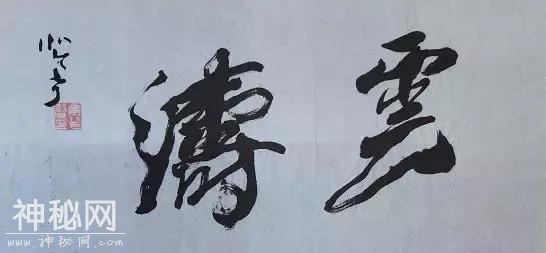 雲濤
神秘网
www.神秘网.com